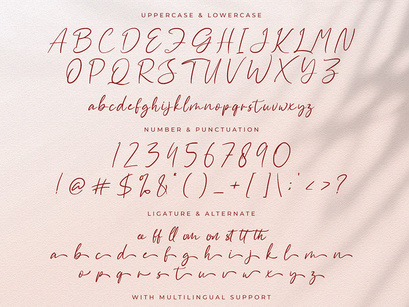 UPPERCASE & LOWERCASE
ABCDEFGHIJKLMN
OPQRSTUVWXYZ
abcdefghijklmnopqrstuvwxyz
NUMBER & PUNCTUATION
1234567890
!@#$%&*()_+[]\:'<>?
LIGATURE & ALTERNATE
ll on st tt th
a b c d e f g h i j k l m n
o p q r s t u v w x y z
WITH MULTILINGUAL SUPPORT